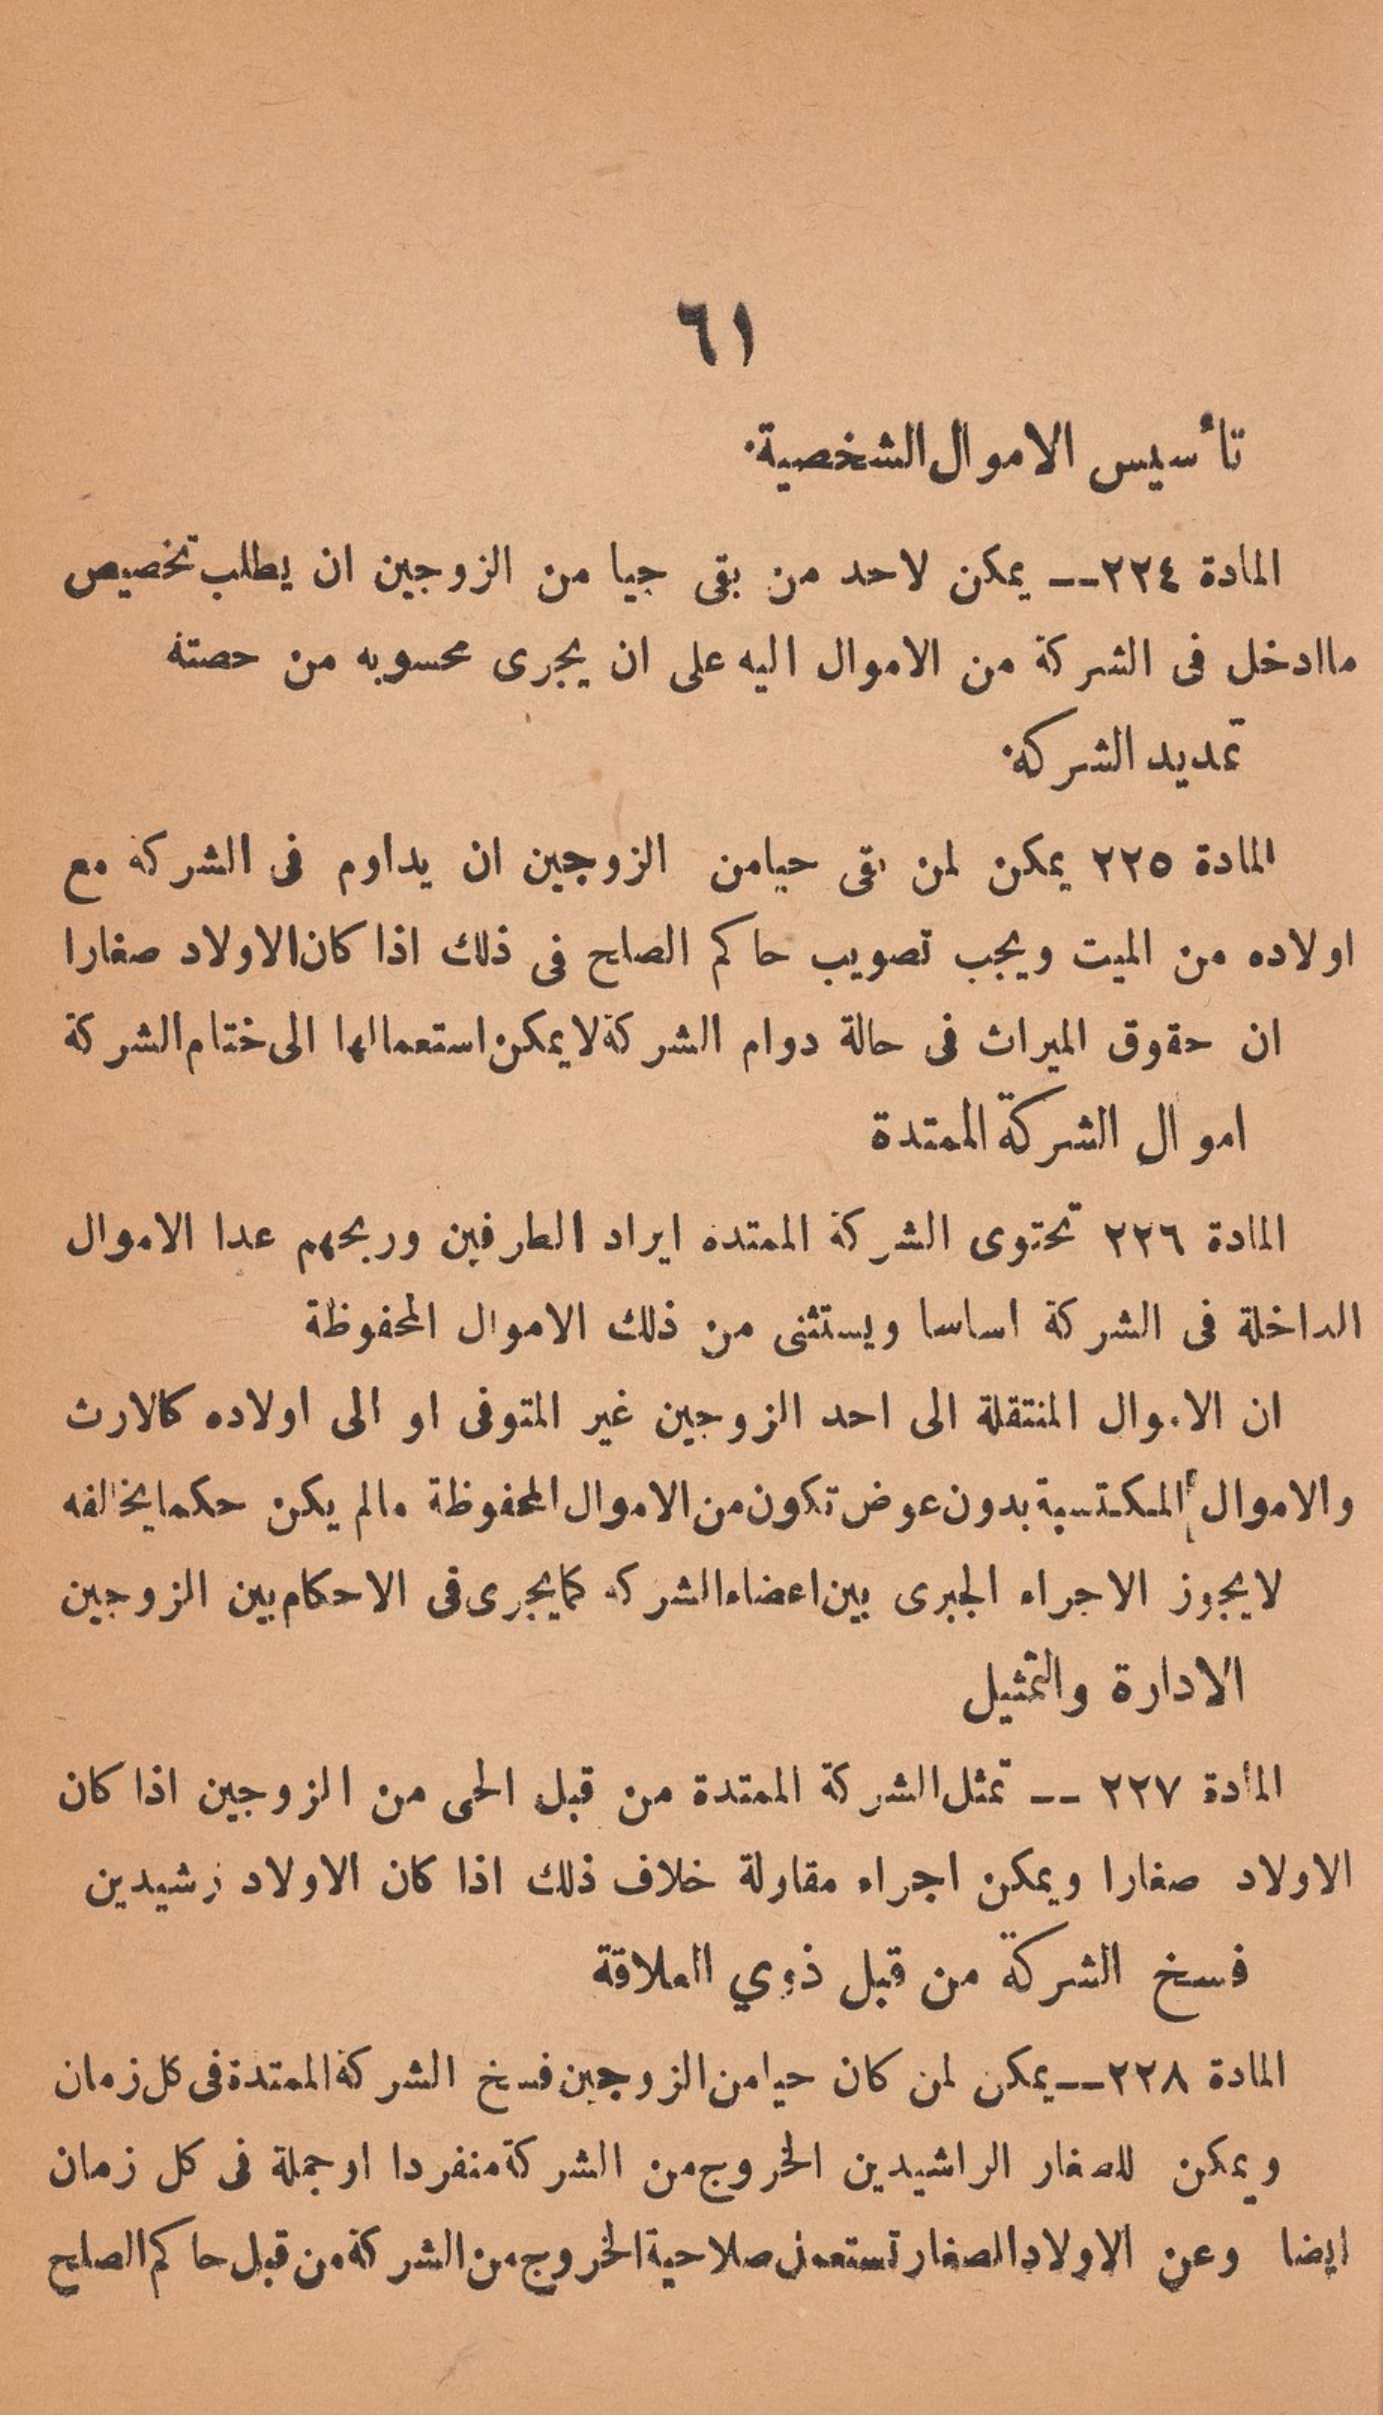 ٦١
تأسيس الاموال الشخصية.
المادة ٢٢٤ــ يمكن لاحد من بقى جيا من الزوجين ان يطلب تخصيص
ماادخل فى الشركة من الاموال اليه على ان يجرى محسوبه من حصته
تمديد الشركه.
المادة ٢٢٥ يمكن لمن بقى حيامن الزوجين ان يداوم فى الشركة مع
اولاده من الميت ويجب تصويب حاكم الصلح فى ذلك اذا كان الاولاد صغارا
ان حقوق الميراث فى حالة دوام الشركة لا يمكن استعمالها الى ختام الشركة
اموال الشركة الممتدة
المادة ٢٢٦ تحتوى الشركة الممتده ايراد الطرفين وربحهم عدا الاموال
الداخلة فى الشركة اساسا ويستثنى من ذلك الاموال المحفوظة
ان الاموال المنتقلة الى احد الزوجين غير المتوفى او الى اولاده كالارث
والاموال المكتسبة بدون عوض تكون من الاموال المحفوظة مالم يكن حكما يخالفه
لايجوز الاجراء الجبرى بين اعضاء الشركه كما يجرى فى الاحكام بين الزوجين
الادارة والتمثيل
المادة ٢٢٧ ــ تمثل الشركة الممتدة من قبل الحى من الزوجين اذا كان
الاولاد صغارا ويمكن اجراء مقاولة خلاف ذلك اذا كان الاولاد رشيدين
فسخ الشركة من قبل ذوي العلاقة
المادة ٢٢٨ــ يمكن لمن كان حيا من الزوجين فسخ الشركة الممتدة فى كل زمان
ويمكن للصغار الراشيدين الخروج من الشركة منفردا او جملة فى كل زمان
ايضا وعن الاولاد الصغار تستعمل صلاحية الخروج من الشركة من قبل حاكم الصلح